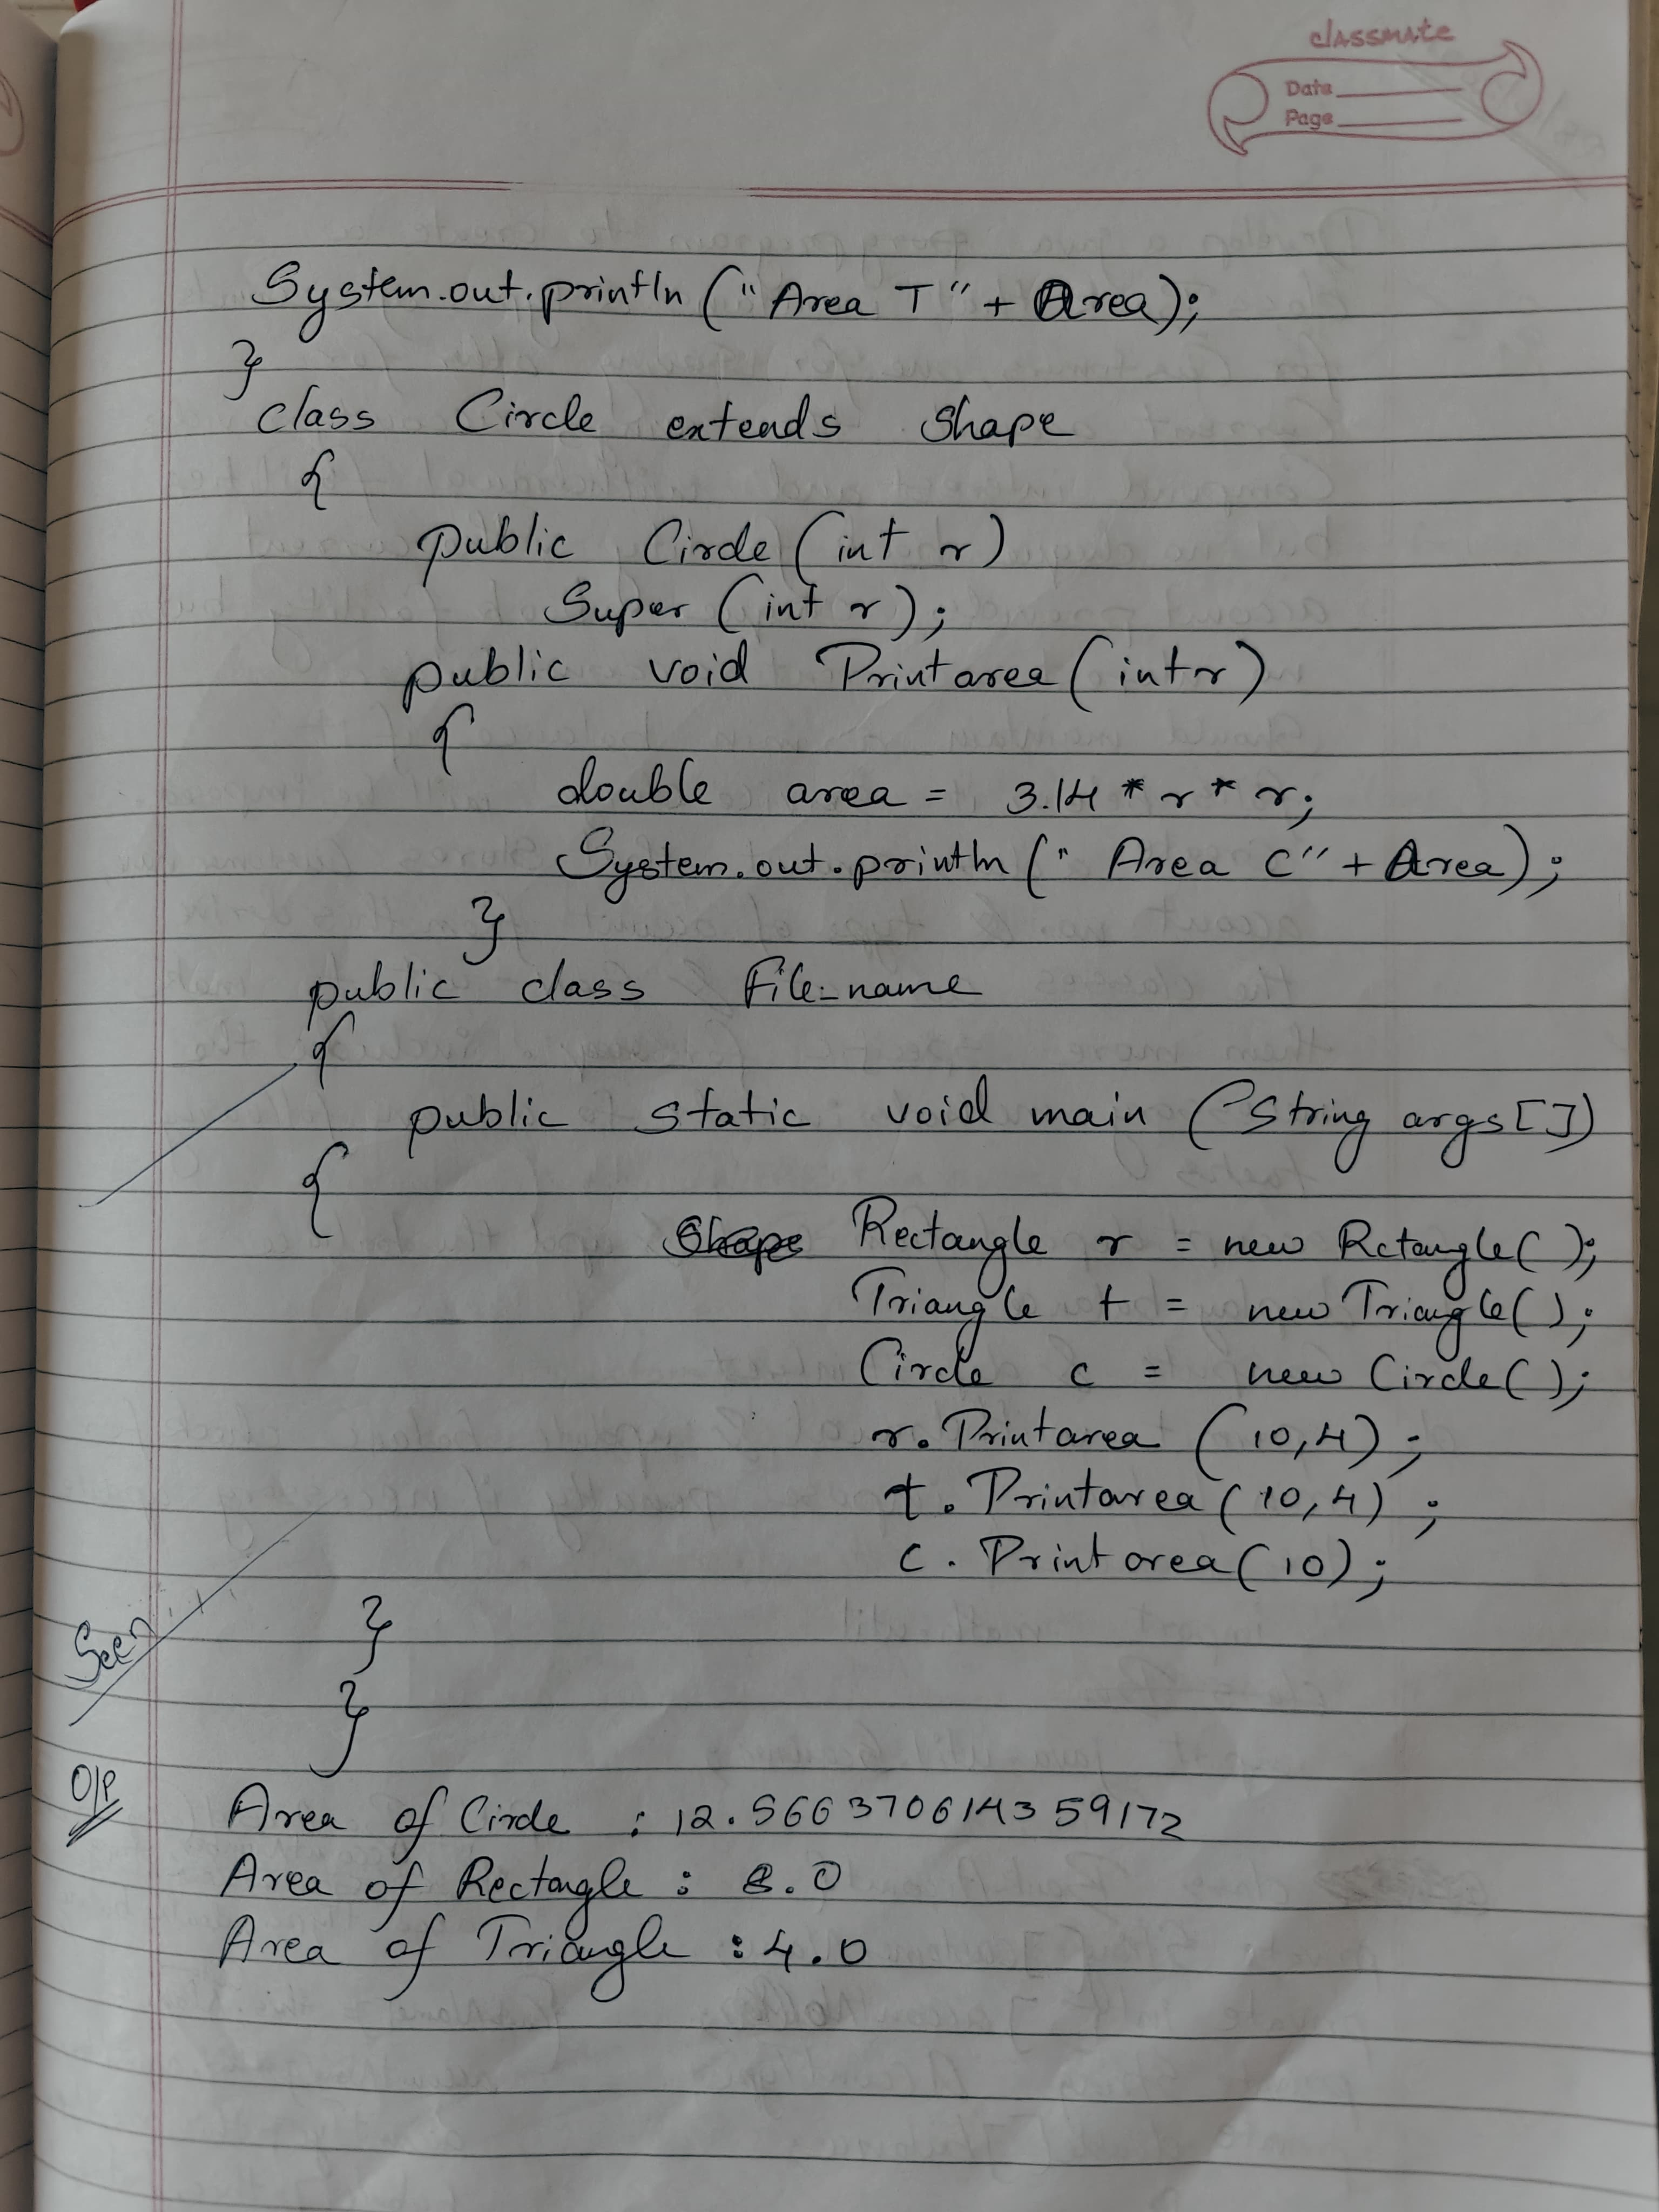 classmate
Date
Page
System.out.println ("Area T" + Area);
}
class Circle extends Shape
{
public Circle (int r)
Super (int r);
public void Printarea (int r)
{
double area = 3.14 * r * r;
System.out.println (" Area C" + Area);
}
public class File_name
{
public static void main (String args[])
{
Shape Rectangle r = new Rctangle();
Triangle t = new Triangle();
Circle c = new Circle();
r. Printarea (10,4);
t. Printarea (10,4);
c. Printarea (10);
}
Seen
}
O/P
Area of Circle : 12.566370614359172
Area of Rectangle : 8.0
Area of Triangle : 4.0